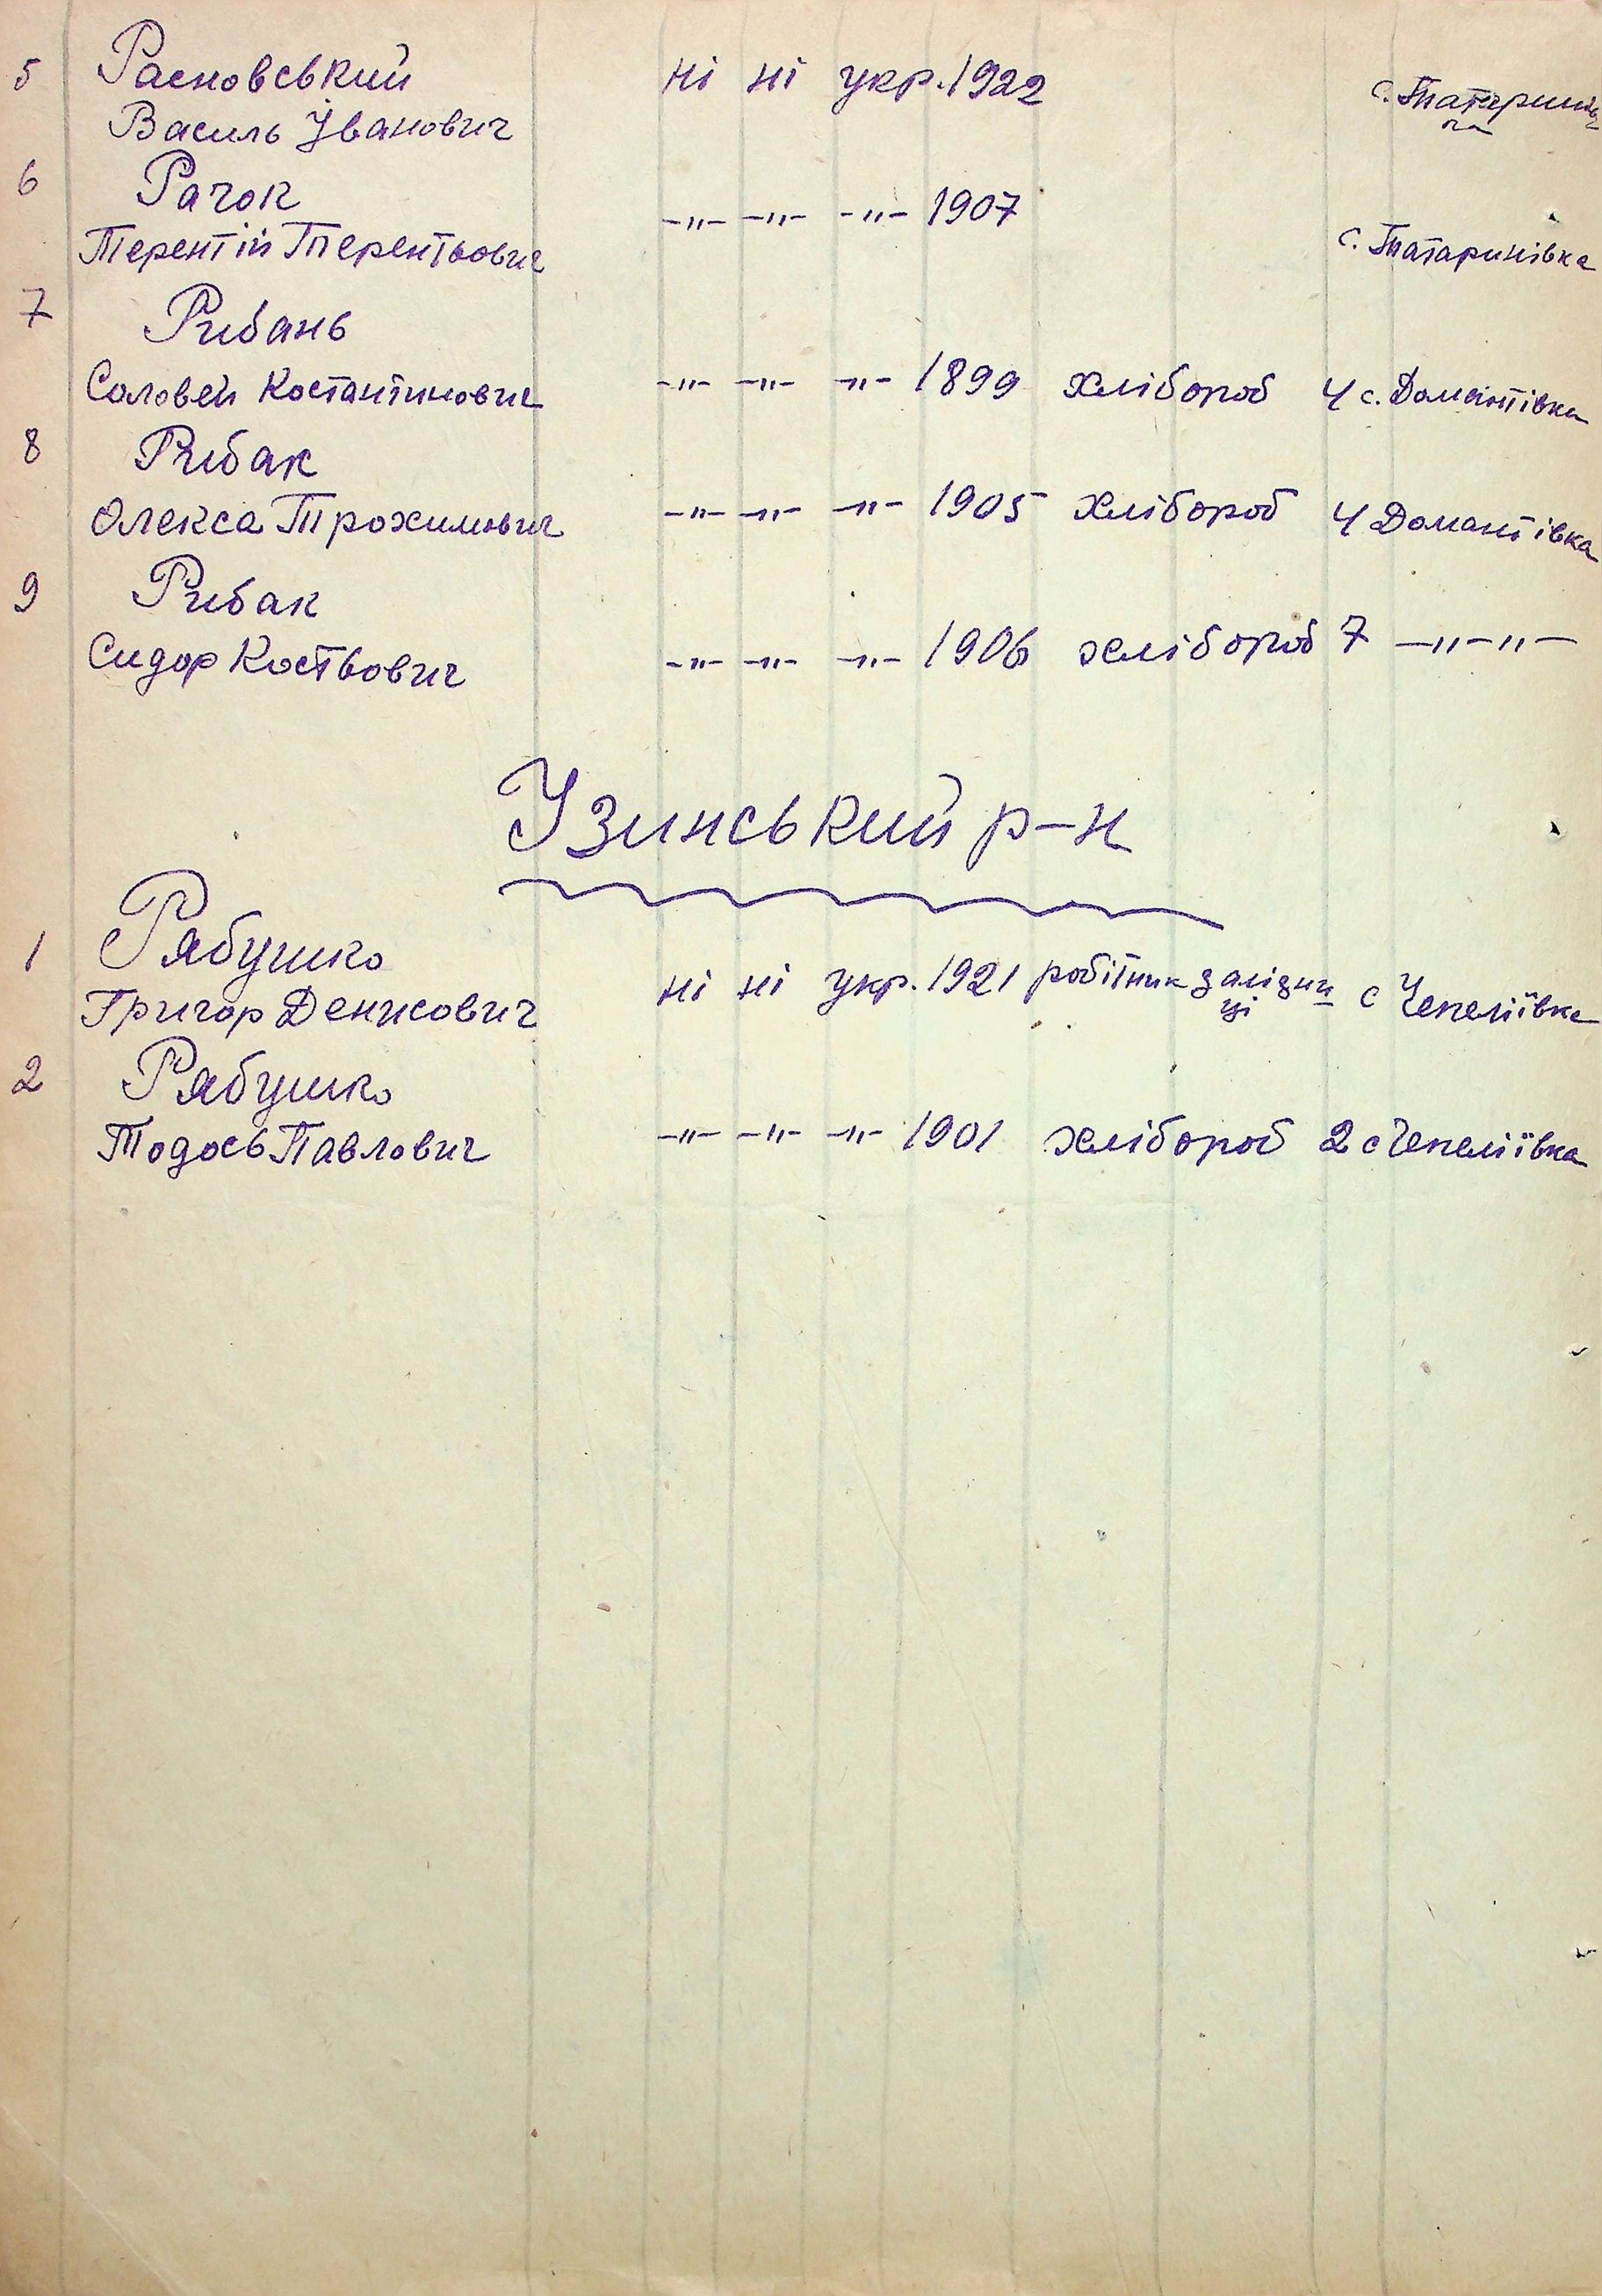 5 Расновський ні ні укр. 1922 с. Татаринів
Василь Іванович ка
6 Рачок -"- -"- -"- 1907
Терентій Терентьович с. Татаринівка
7 Рибань
Соловей Костантинович -"- -"- -"- 1899 хлібороб 4 с. Домантівка
8 Рибак
Олекса Трохимович -"- -"- -"- 1905 хлібороб 4 Домантівка
9 Рибак
Сидор Костьович -"- -"- -"- 1906 хлібороб 7 -"-"-
Узинський р-н
1 Рябушко
Григор Денисович ні ні укр. 1921 робітник залізни с Чепеліївка
ці
2 Рябушко
Тодось Павлович -"- -"- -"- 1901 хлібороб 2 с Чепеліївка